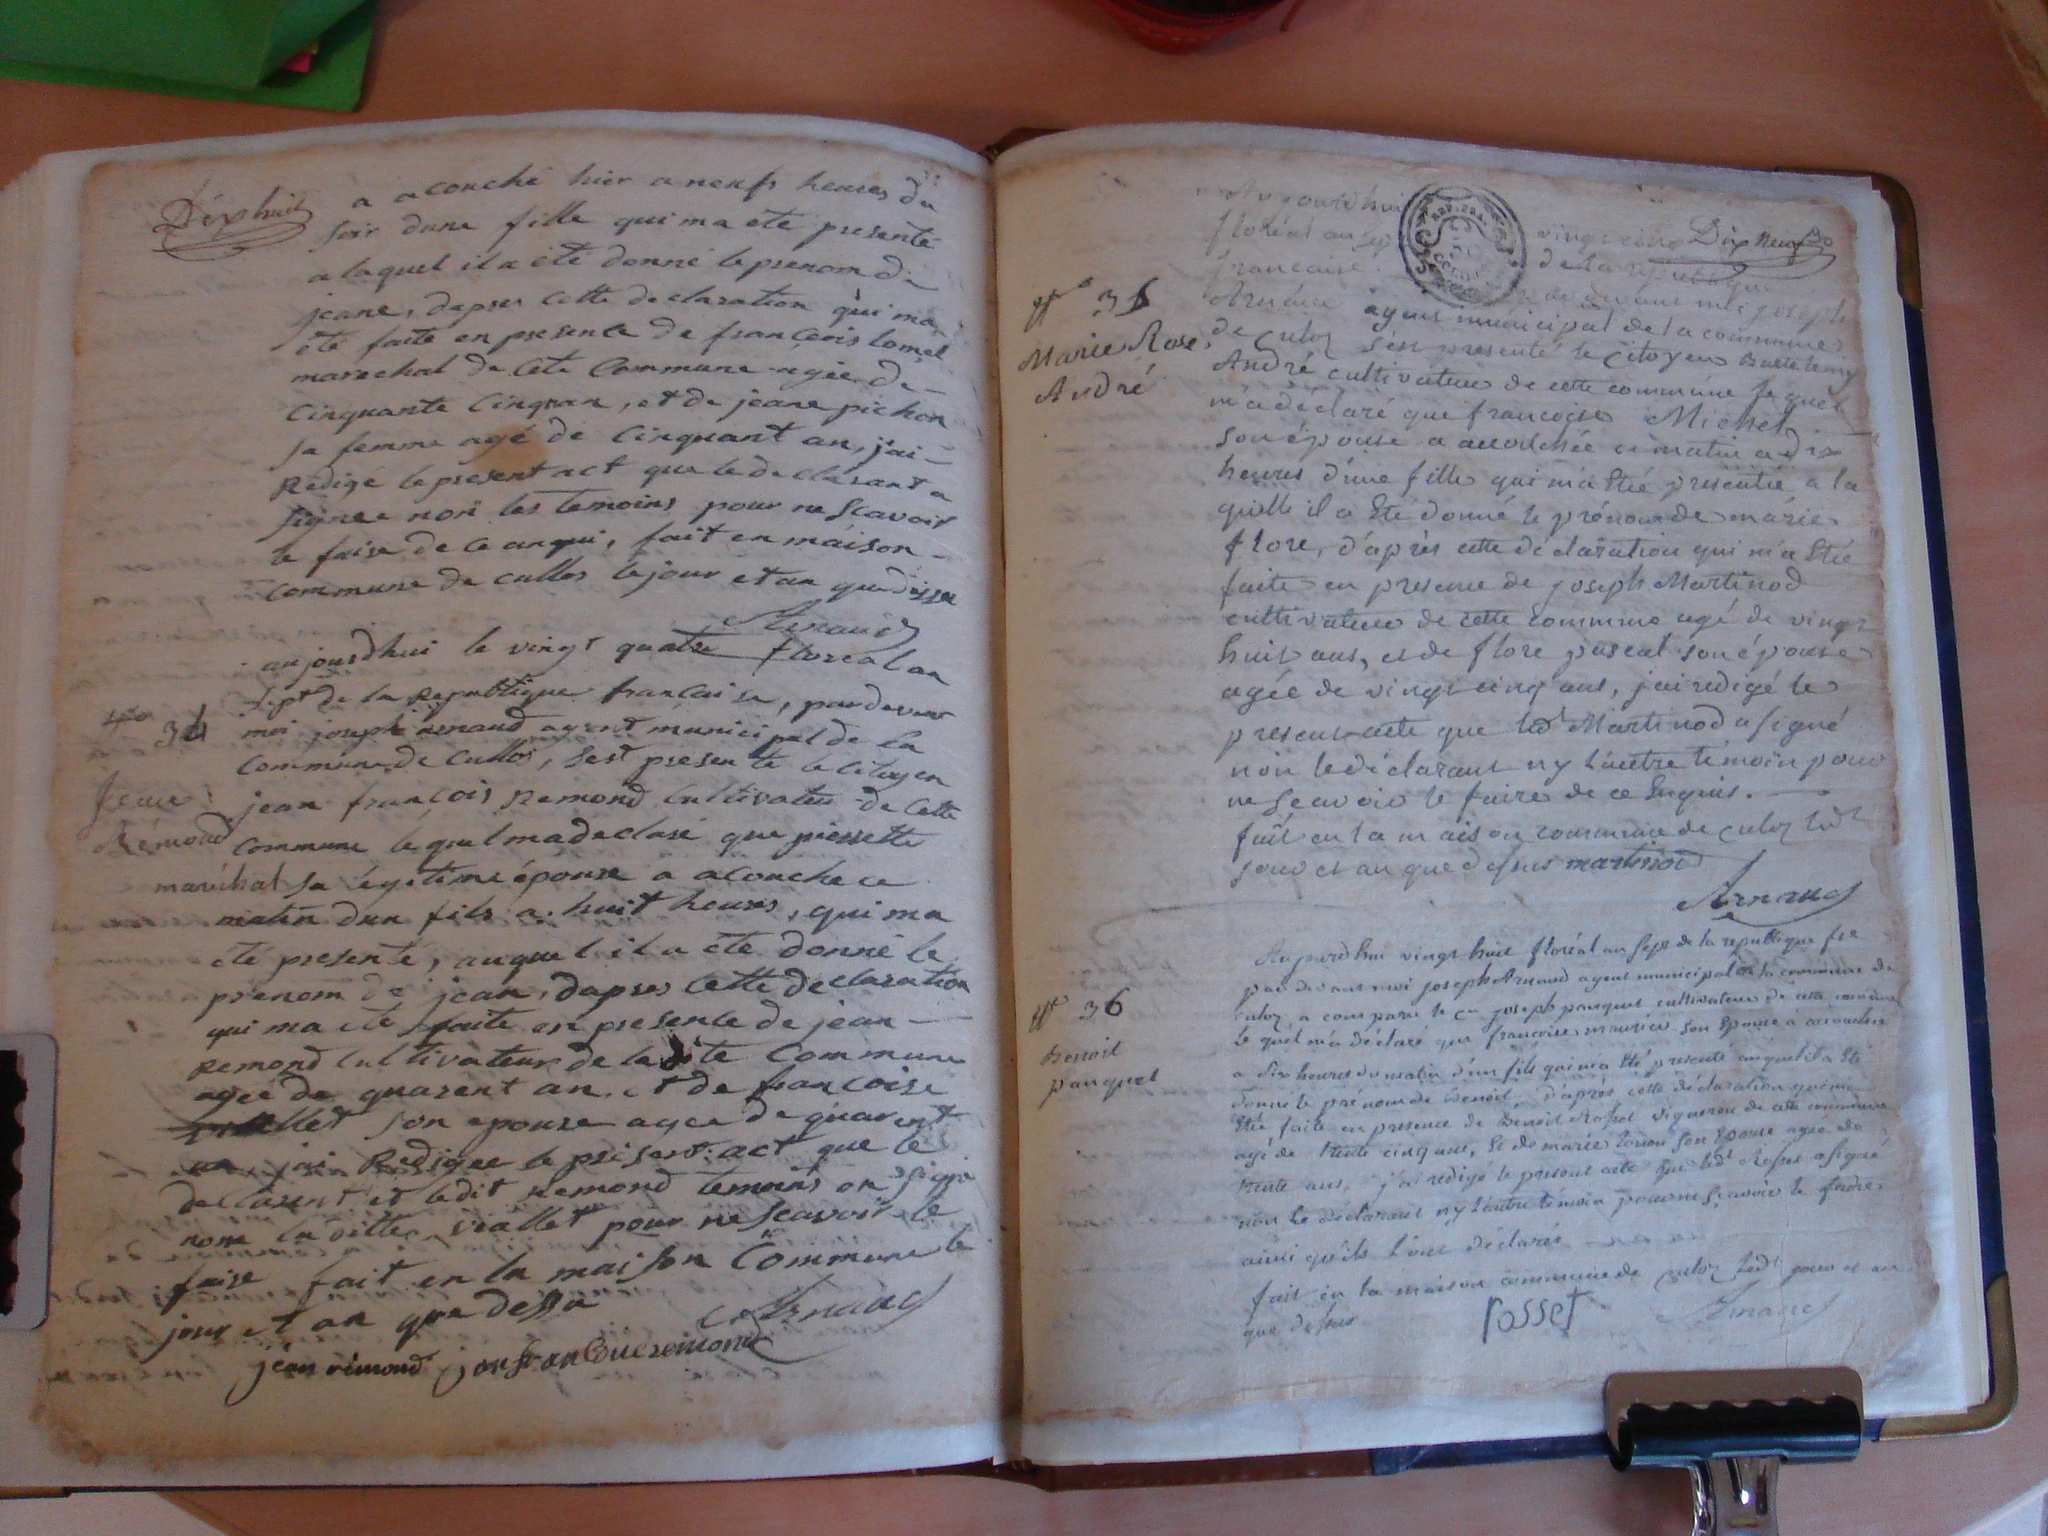 Dix huit
a acouché hier a neufs heures du
soir dune fille qui ma ete presenté
a laquel il a été donné le prenom de
jeane, dapres cette declaration qui ma
été faite en presente de françois lomel
marechal de cete Commune agée de
Cinquante Cinquan, et de jeane pichon
sa femme agé de Cinquant an, j'ai
Redigé le present act que le declarant a
signee non les temoins pour ne scavoir
le faire de ce anqui, fait en maison
Commune de culles le jour et an que dessu
Arnaud
aujourdhui le vingt quatre floreal an
sept de la Republique francaise, pardevant
moi joseph arnaud agent municipal de la
Commune de Culles, sest presenté le Citoyen
jean françois Remond Cultivateu de Cette
Commune le quel madeclaré que pierrette
maréchal sa legitime épouse a acouche ce
matin dun fils a huit heures, qui ma
été presenté, auquel il a été donné le
prenom de jean, dapres Cette declaration
qui ma ete faite en presente de jean
Remond Cultivateur de la dite Commune
agée de quarent an, et de francoise
viallet son epouse agee de quarent
an jai Redigee le present act que le
declarent et ledit Remond temoins on signé
nom la ditte viallet pour ne scavoir le
faire fait en la maison Commune le
jour et an que dessu
Arnaud
jean rémond
34
Jean
Rémond
Dix neuf
Aujourdhui vingt cinq
floréal an sept de la republique
francaise. par devant moi joseph
Arnaud agent municipal de la commune
de Culoz s'est presenté le Citoyen Bartelemy
André cultivateur de cette commune le quel
m'a déclaré que francoise Michel
son épouse a accouchée ce matin a dix
heures d'une fille qui m'a été presentée a la
quelle il a été donné le prénom de marie
flore, d'après cette déclaration qui m'a été
faite en presence de joseph Martinod
cultivateur de cette commune agé de vingt
huit ans, et de flore pascal son épouse
agée de vingt cinq ans, j'ai redigé le
present acte que led. Martinod a signé
non le déclarant ny l'autre témoin pour
ne scavoir le faire de ce Enquis.
fait en la maison commune de culoz led.
jour et an que dessus martinod
Arnaud
35
Marie Rose
André
Aujourdhui vingt huit floréal an sept de la republique fse
par devant moi joseph Arnaud agent municipal de la commune de
culoz a comparu le cn joseph panquet cultivateur de cette commune
le quel m'a déclaré que françoise son Epouse a accouchée
a six heures du matin d'un fils qui m'a été presenté auquel il a été
donné le prénom de Benoit, d'après cette déclaration qui m'a
été faite en presence de Benoit Rosset vigneron de cette commune
agé de trente cinq ans, Et de marie son Epouse agée de
trente ans. j'ai redigé le present acte que led. Rosset a signé
non le déclarant ny l'autre témoin pour ne scavoir le faire
ainsi qu'ils l'ont déclaré
fait en la maison commune de culoz led. jour et an
que dessus
rosset
Arnaud
36
benoit
panquet